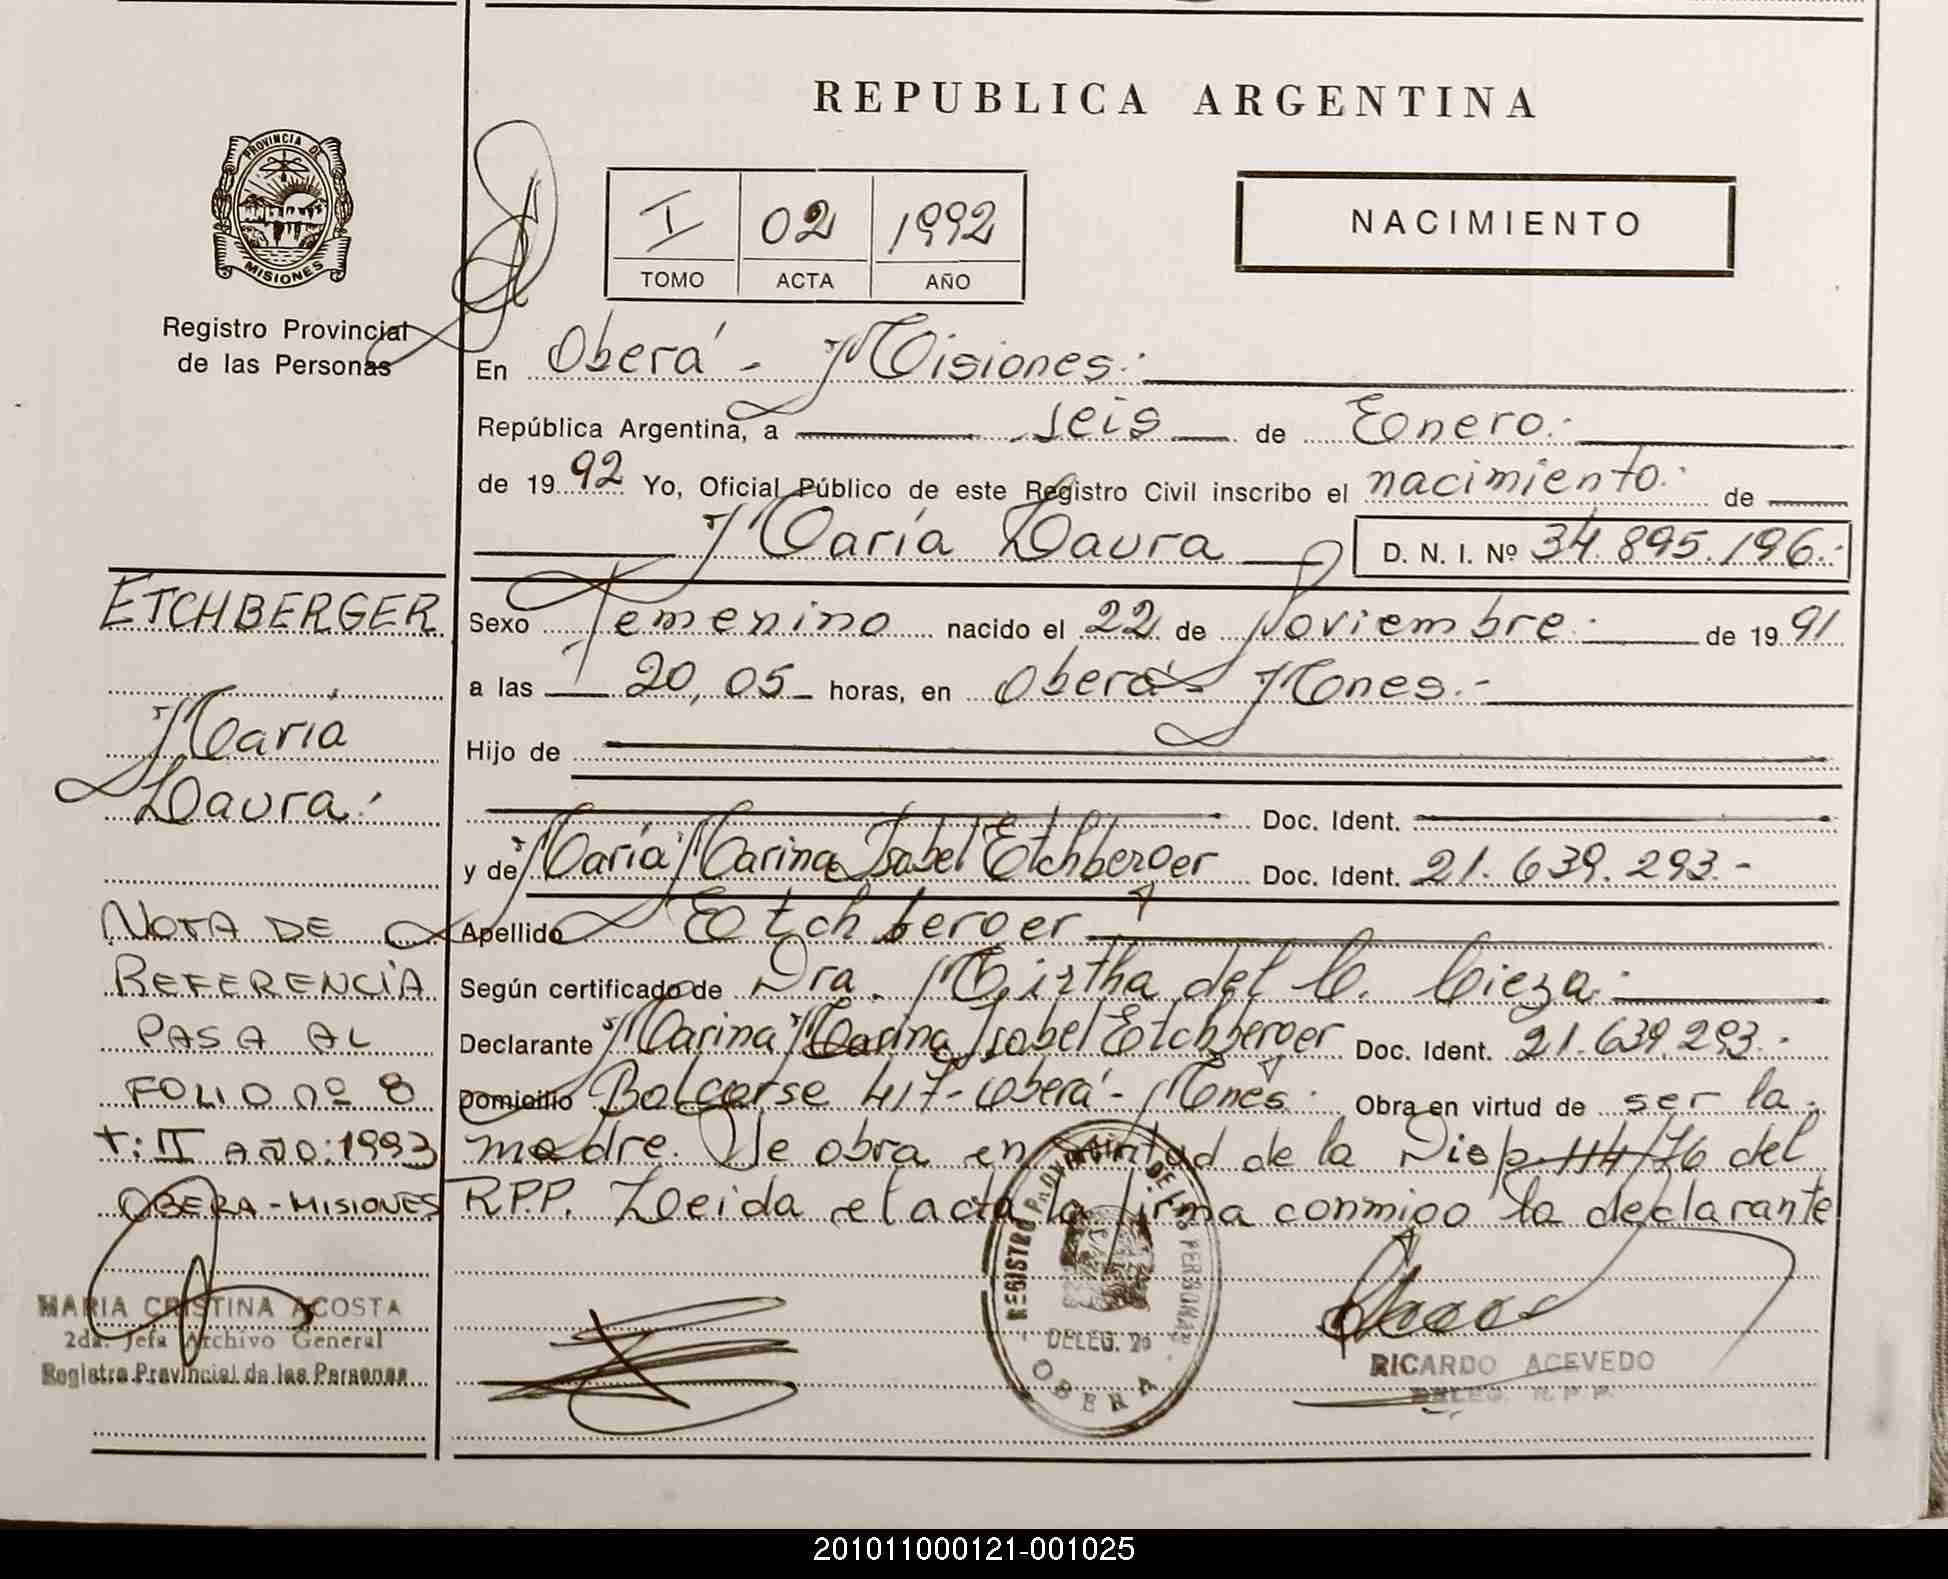 REPUBLICA ARGENTINA
PROVINCIA DE
MISIONES
Registro Provincial
de las Personas
I 02 1992
TOMO ACTA AÑO
NACIMIENTO
En Oberá - Misiones.-
República Argentina, a seis de Enero.-
de 1992 Yo, Oficial Público de este Registro Civil inscribo el nacimiento.- de
María Laura D. N. I. Nº 34.895.196.-
Sexo Femenino nacido el 22 de Noviembre.- de 1991
a las 20,05 horas, en Oberá Mones.-
Hijo de
Doc. Ident.
y de María Marina Isabel Etchberger Doc. Ident. 21.639.293.-
Apellido Etchberger
Según certificado de Dra. Mirtha del C. Cieza.-
Declarante Marina Isabel Etchberger Doc. Ident. 21.639.293.-
Domicilio Balcarse 417-Oberá-Mones. Obra en virtud de ser la
madre. Se obra en virtud de la Disp. 114/76 del
R.P.P. Leida el acta la firma conmigo la declarante
ETCHBERGER
María
Laura.
NOTA DE
REFERENCIA
PASA AL
FOLIO nº 8
T: II AÑO: 1993
OBERA-MISIONES
MARIA CRISTINA ACOSTA
2da. Jefa Archivo General
Registro Provincial de las Personas
REGISTRO PROVINCIAL DE LAS PERSONAS
DELEG.
OBERA
RICARDO ACEVEDO
DELEG. R.P.P.
201011000121-001025